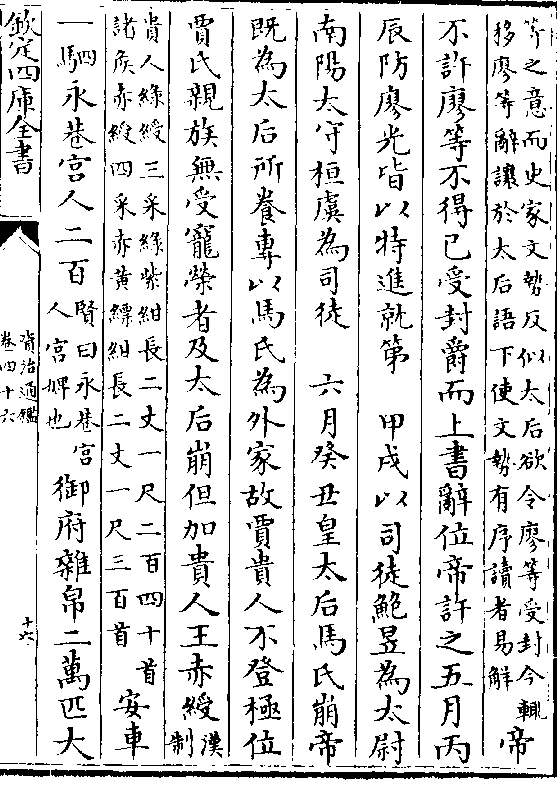 等之意而史家文勢反似太后欲令廖等受封今輒
移廖等辭讓於太后語下使文勢有序讀者易解
帝
不許廖等不得已受封爵而上書辭位帝許之五月丙
辰防廖光皆以特進就第　甲戌以司徒鮑昱為太尉
南陽太守桓虞為司徒　六月癸丑皇太后馬氏崩帝
既為太后所養專以馬氏為外家故賈貴人不登極位
賈氏親族無受寵榮者及太后崩但加貴人王赤綬
漢
制
貴人緑綬三采緑紫紺長二丈一尺二百四十首
諸侯赤綬四采赤黄縹紺長二丈一尺三百首
安車
一駟永巷宫人二百
賢曰永巷宫
人宫婢也
御府雜帛二萬匹大
欽定四庫全書
資治通鑑
卷四十六
十六